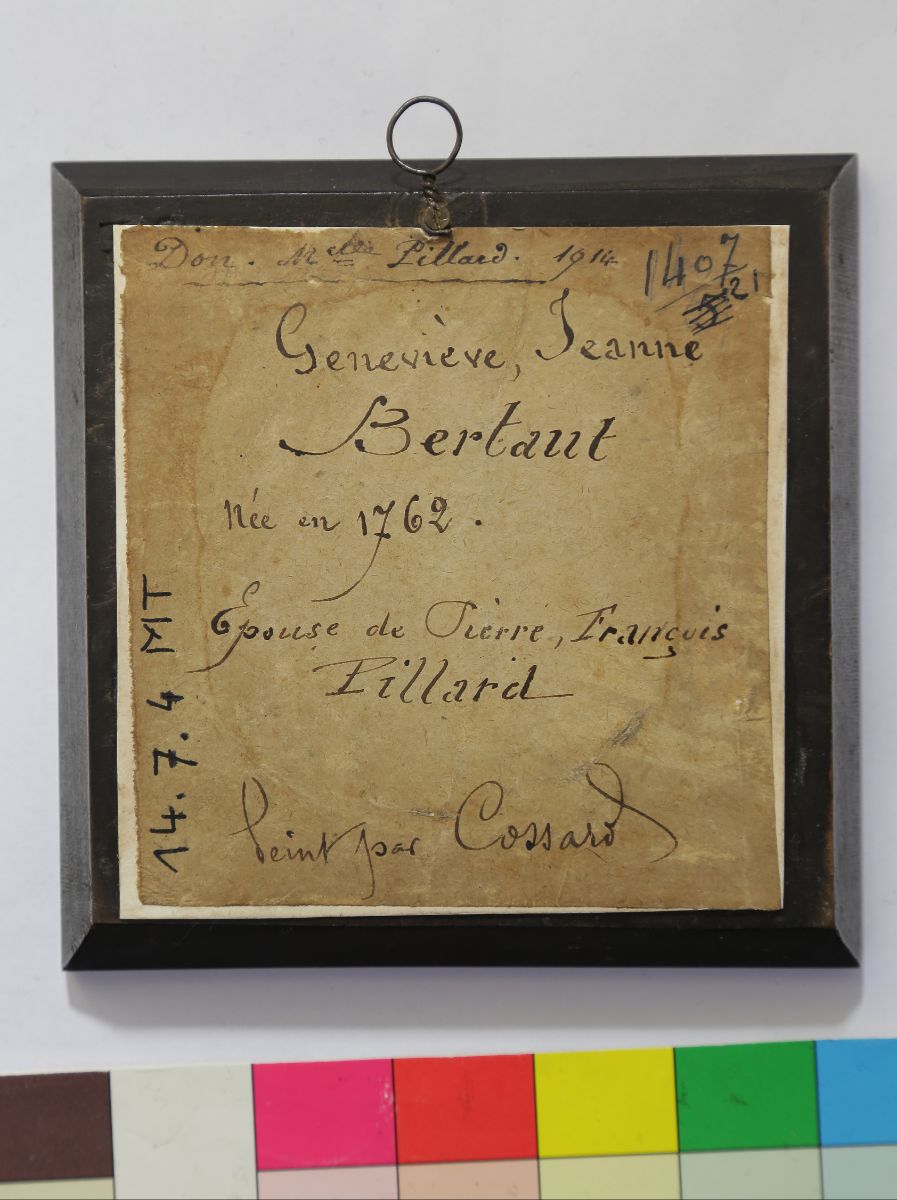 Don. Melle Pillard. 1914
1407
21
Geneviève, Jeanne
Bertaut
Née en 1762.
Epouse de Pièrre, François
Pillard
Peint par Cossard
14.7.4 MT